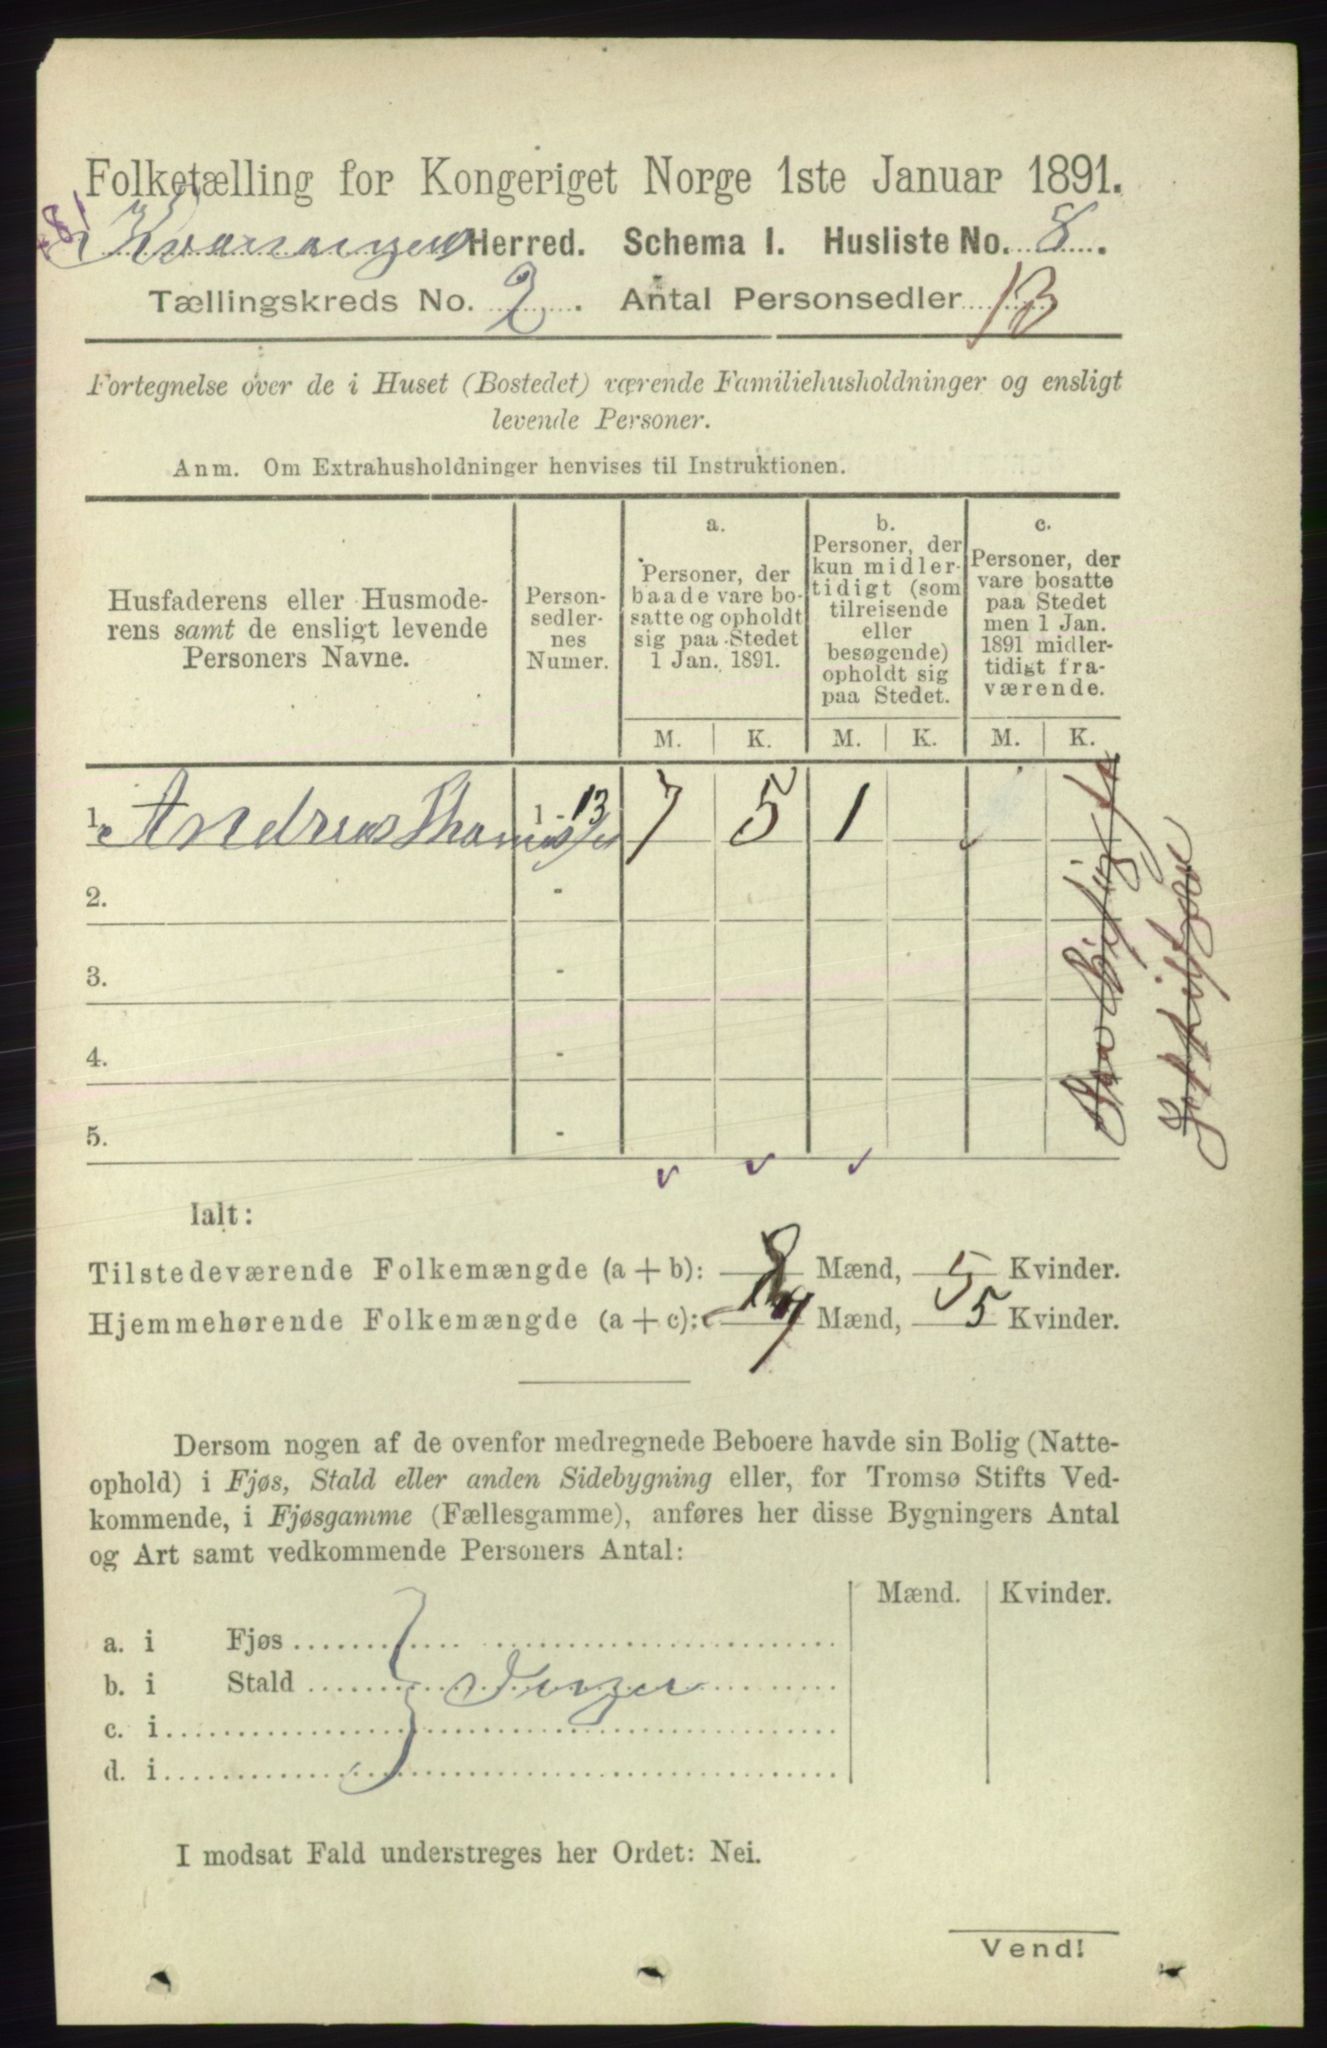 Folketælling for Kongeriget Norge 1ste Januar 1891.
Kvænangen Herred. Schema I. Husliste No. 8.
Tællingskreds No. 2. Antal Personsedler 13
Fortegnelse over de i Huset (Bostedet) værende Familiehusholdninger og ensligt
levende Personer.
Anm. Om Extrahusholdninger henvises til Instruktionen.
Husfaderens eller Husmode-
rens samt de ensligt levende
Personers Navne.
Person-
sedler-
nes
Numer.
a.
Personer, der
baade vare bo-
satte og opholdt
sig paa Stedet
1 Jan. 1891.
b.
Personer, der
kun midler-
tidigt (som
tilreisende
eller
besøgende)
opholdt sig
paa Stedet.
c.
Personer, der
vare bosatte
paa Stedet
men 1 Jan.
1891 midler-
tidigt fra-
værende.
M. K. M. K. M. K.
1. Andreas Thomas 1 - 13 7 5 1
2. -
3. -
4. -
5. -
Ialt:
Tilstedeværende Folkemængde (a + b): 8 Mænd, 5 Kvinder.
Hjemmehørende Folkemængde (a + c): 7 Mænd, 5 Kvinder.
Dersom nogen af de ovenfor medregnede Beboere havde sin Bolig (Natte-
ophold) i Fjøs, Stald eller anden Sidebygning eller, for Tromsø Stifts Ved-
kommende, i Fjøsgamme (Fællesgamme), anføres her disse Bygningers Antal
og Art samt vedkommende Personers Antal:
Mænd. Kvinder.
a. i Fjøs
b. i Stald Inzen
c. i
d. i
I modsat Fald understreges her Ordet: Nei.
Vend!